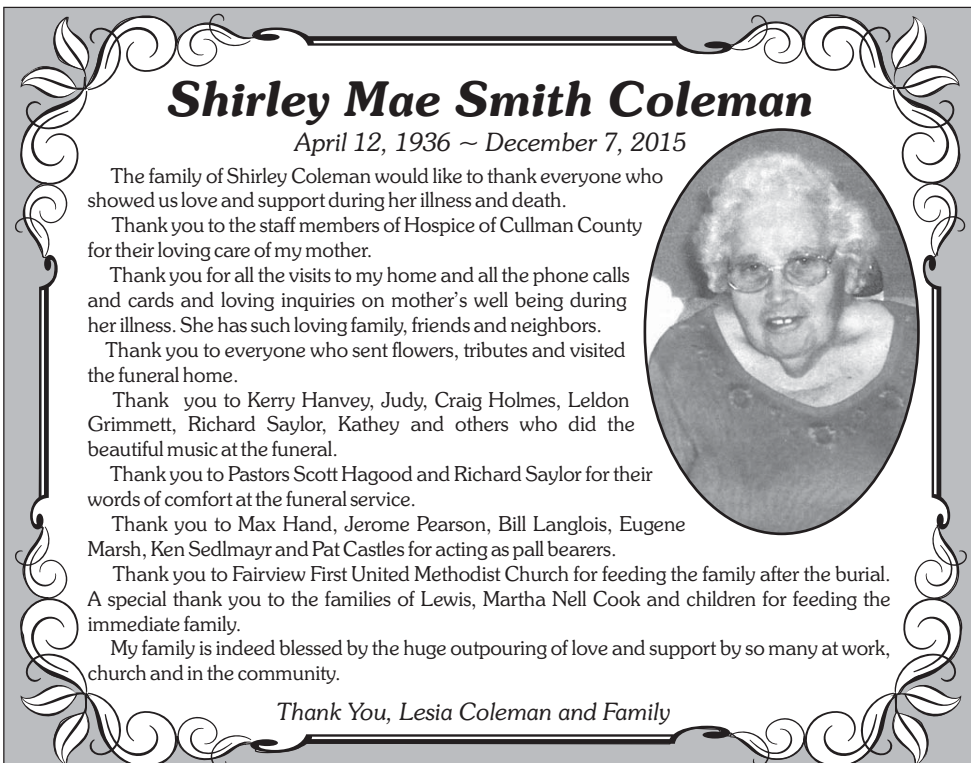 Shirley Mae Smith Coleman
April 12, 1936 ~ December 7, 2015
The family of Shirley Coleman would like to thank everyone who
showed us love and support during her illness and death.
Thank you to the staff members of Hospice of Cullman County
for their loving care of my mother.
Thank you for all the visits to my home and all the phone calls
and cards and loving inquiries on mother's well being during
her illness. She has such loving family, friends and neighbors.
Thank you to everyone who sent flowers, tributes and visited
the funeral home.
Thank you to Kerry Hanvey, Judy, Craig Holmes, Leldon
Grimmett, Richard Saylor, Kathey and others who did the
beautiful music at the funeral.
Thank you to Pastors Scott Hagood and Richard Saylor for their
words of comfort at the funeral service.
Thank you to Max Hand, Jerome Pearson, Bill Langlois, Eugene
Marsh, Ken Sedlmayr and Pat Castles for acting as pall bearers.
Thank you to Fairview First United Methodist Church for feeding the family after the burial.
A special thank you to the families of Lewis, Martha Nell Cook and children for feeding the
immediate family.
My family is indeed blessed by the huge outpouring of love and support by so many at work,
church and in the community.
Thank You, Lesia Coleman and Family